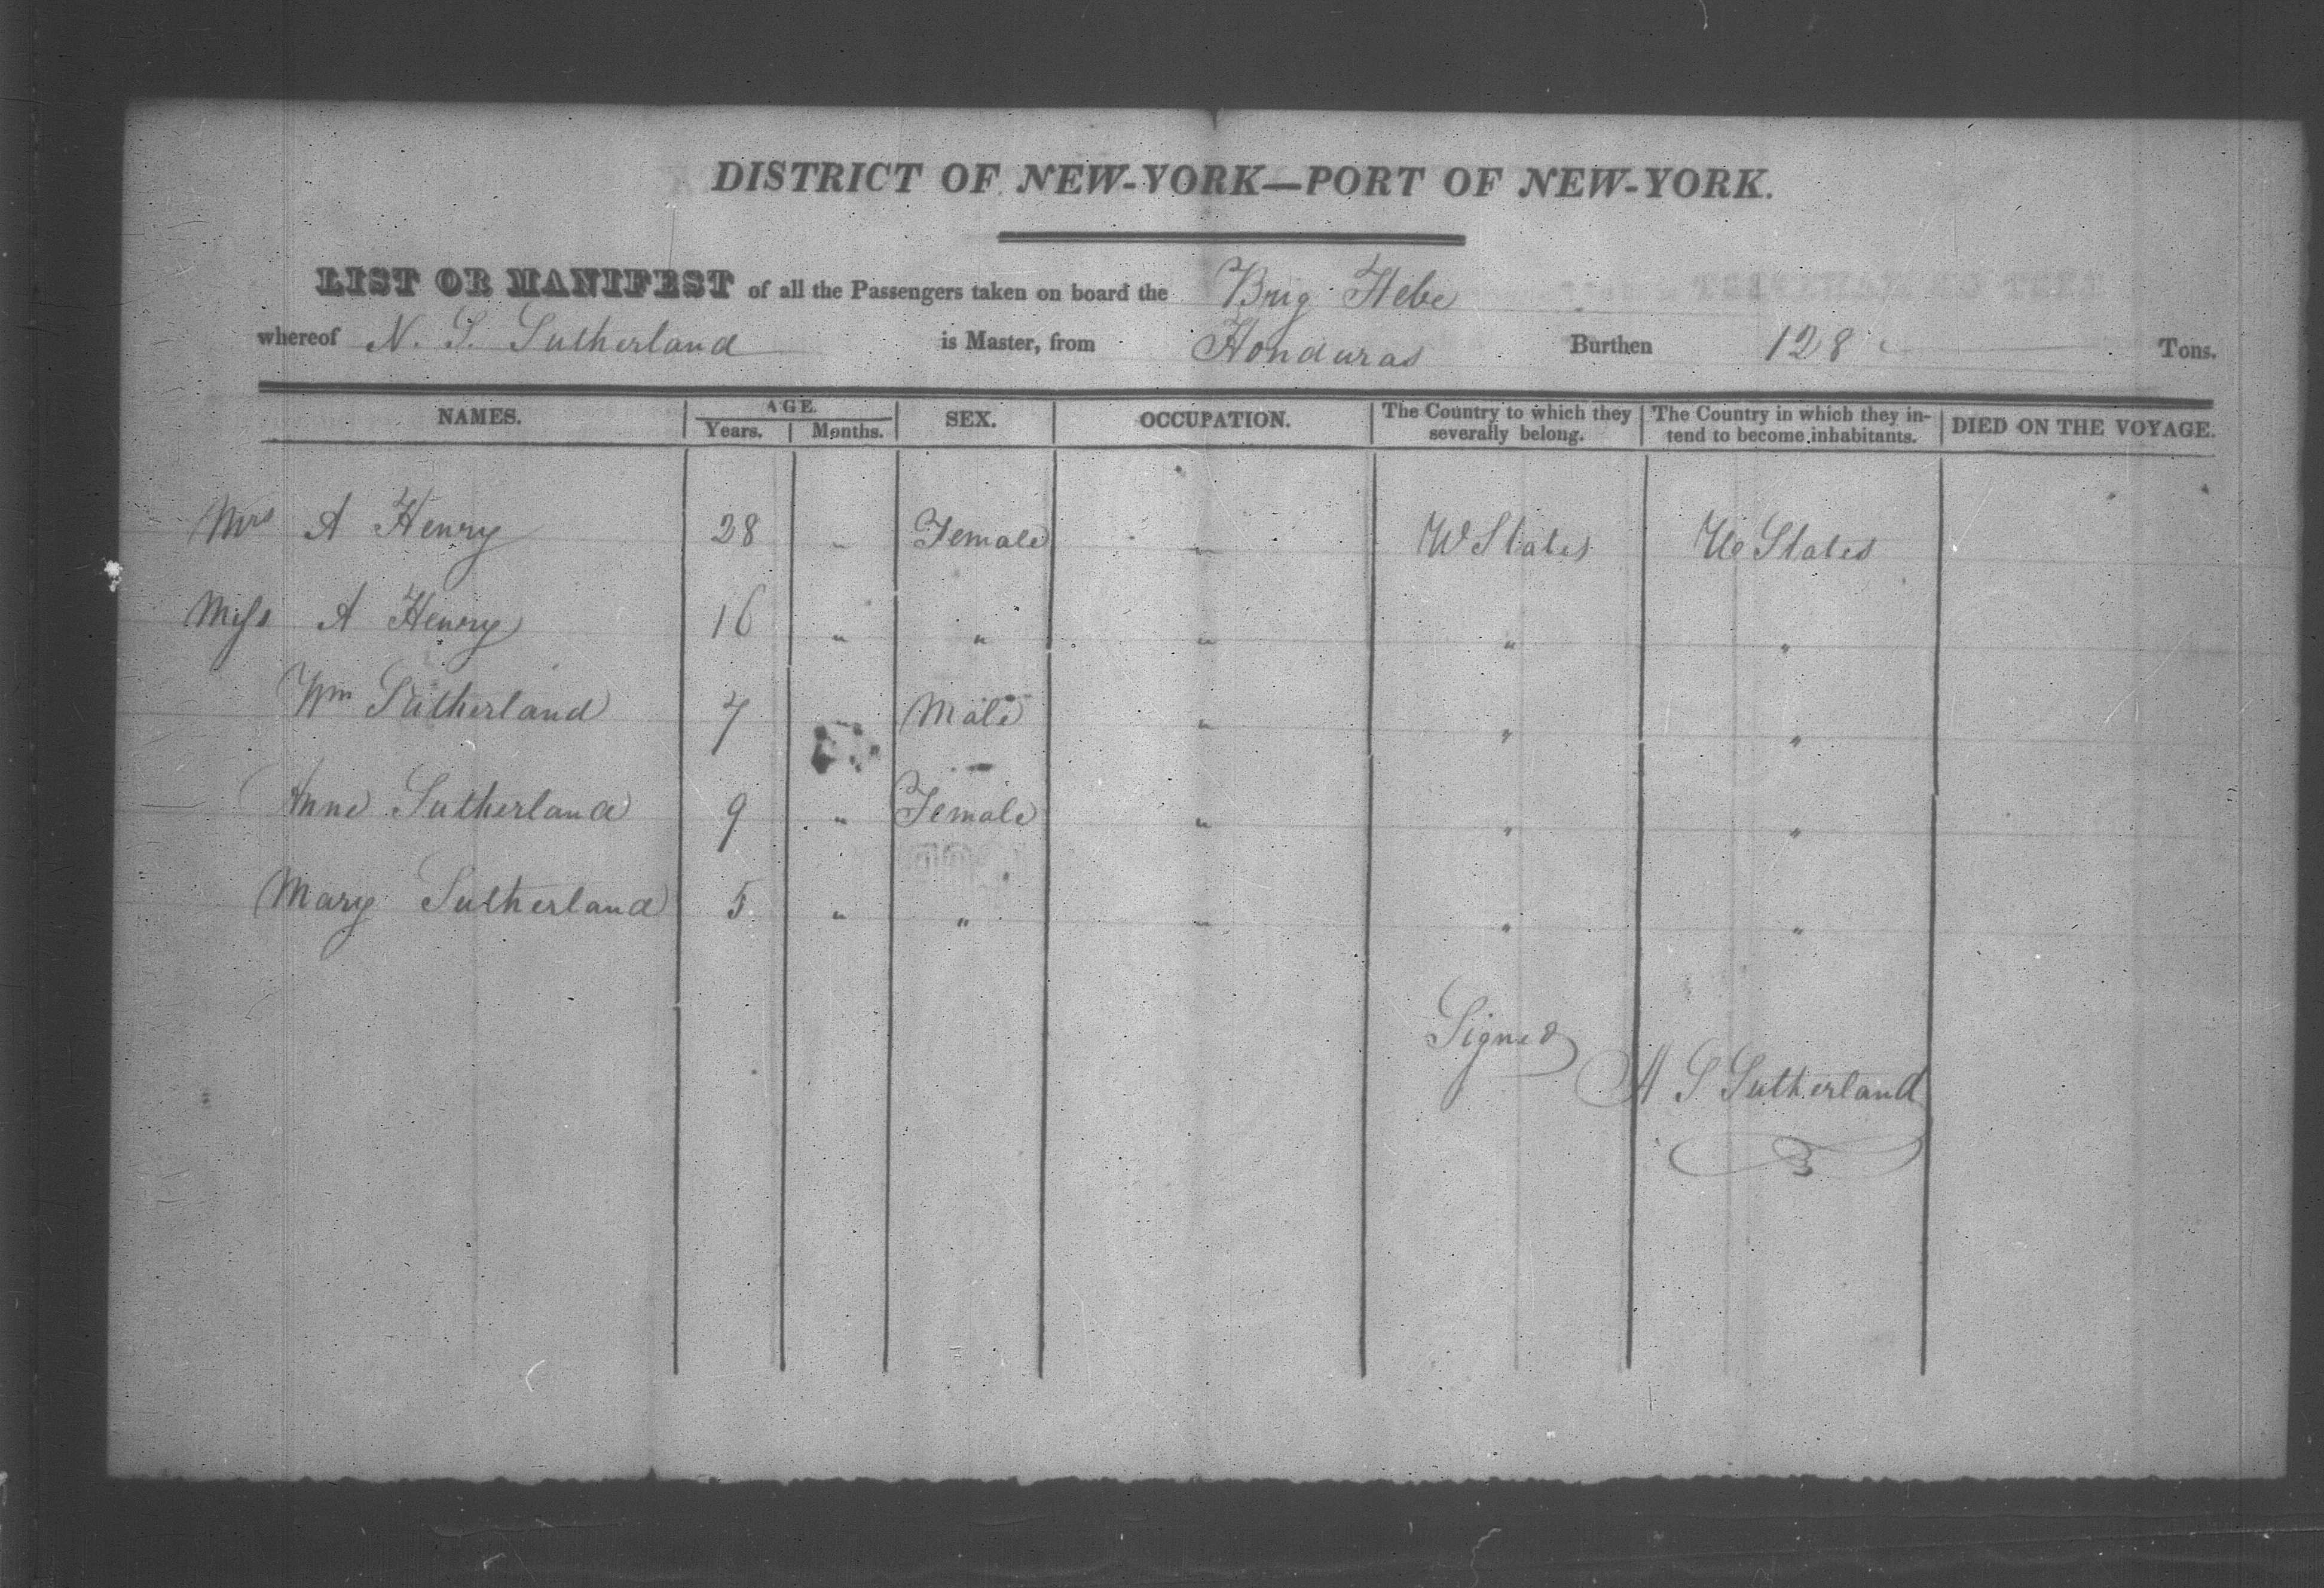 DISTRICT OF NEW-YORK—PORT OF NEW-YORK.
LIST OR MANIFEST of all the Passengers taken on board the Brig Hebe
whereof N. S. Sutherland is Master, from Honduras Burthen 128 Tons.
NAMES. AGE. Years. Months. SEX. OCCUPATION. The Country to which they severally belong. The Country in which they intend to become inhabitants. DIED ON THE VOYAGE.
Mrs A Henry 28 " Female " U States U States
Miss A Henry 16 " " " " "
Wm Sutherland 7 Male " " "
Anne Sutherland 9 " Female " " "
Mary Sutherland 5 " " " " "
Signed
S Sutherland